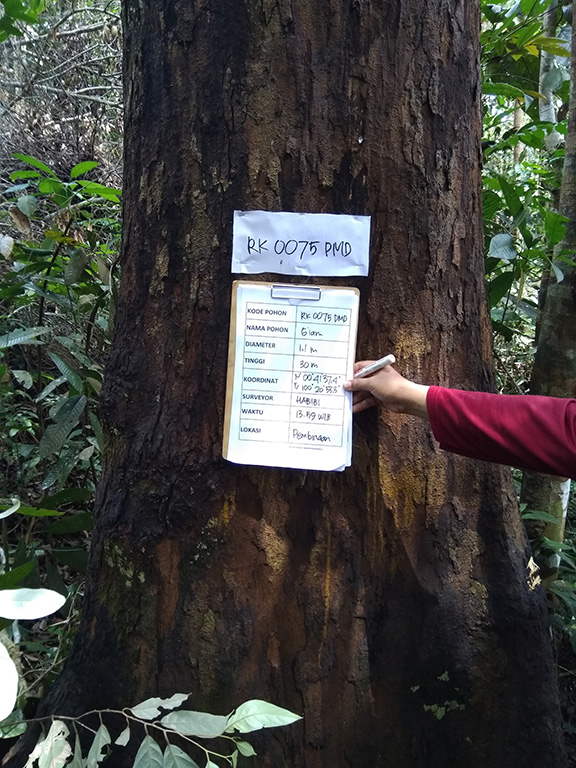 RK 0075 PMD
KODE POHON RK 0075 PMD
NAMA POHON Giam
DIAMETER 1.1 m
TINGGI 30 m
KOORDINAT N 00°41'37.4"
E 100°20'33.3"
SURVEYOR HABIBI
WAKTU 13.59 WIB
LOKASI Pembinaan